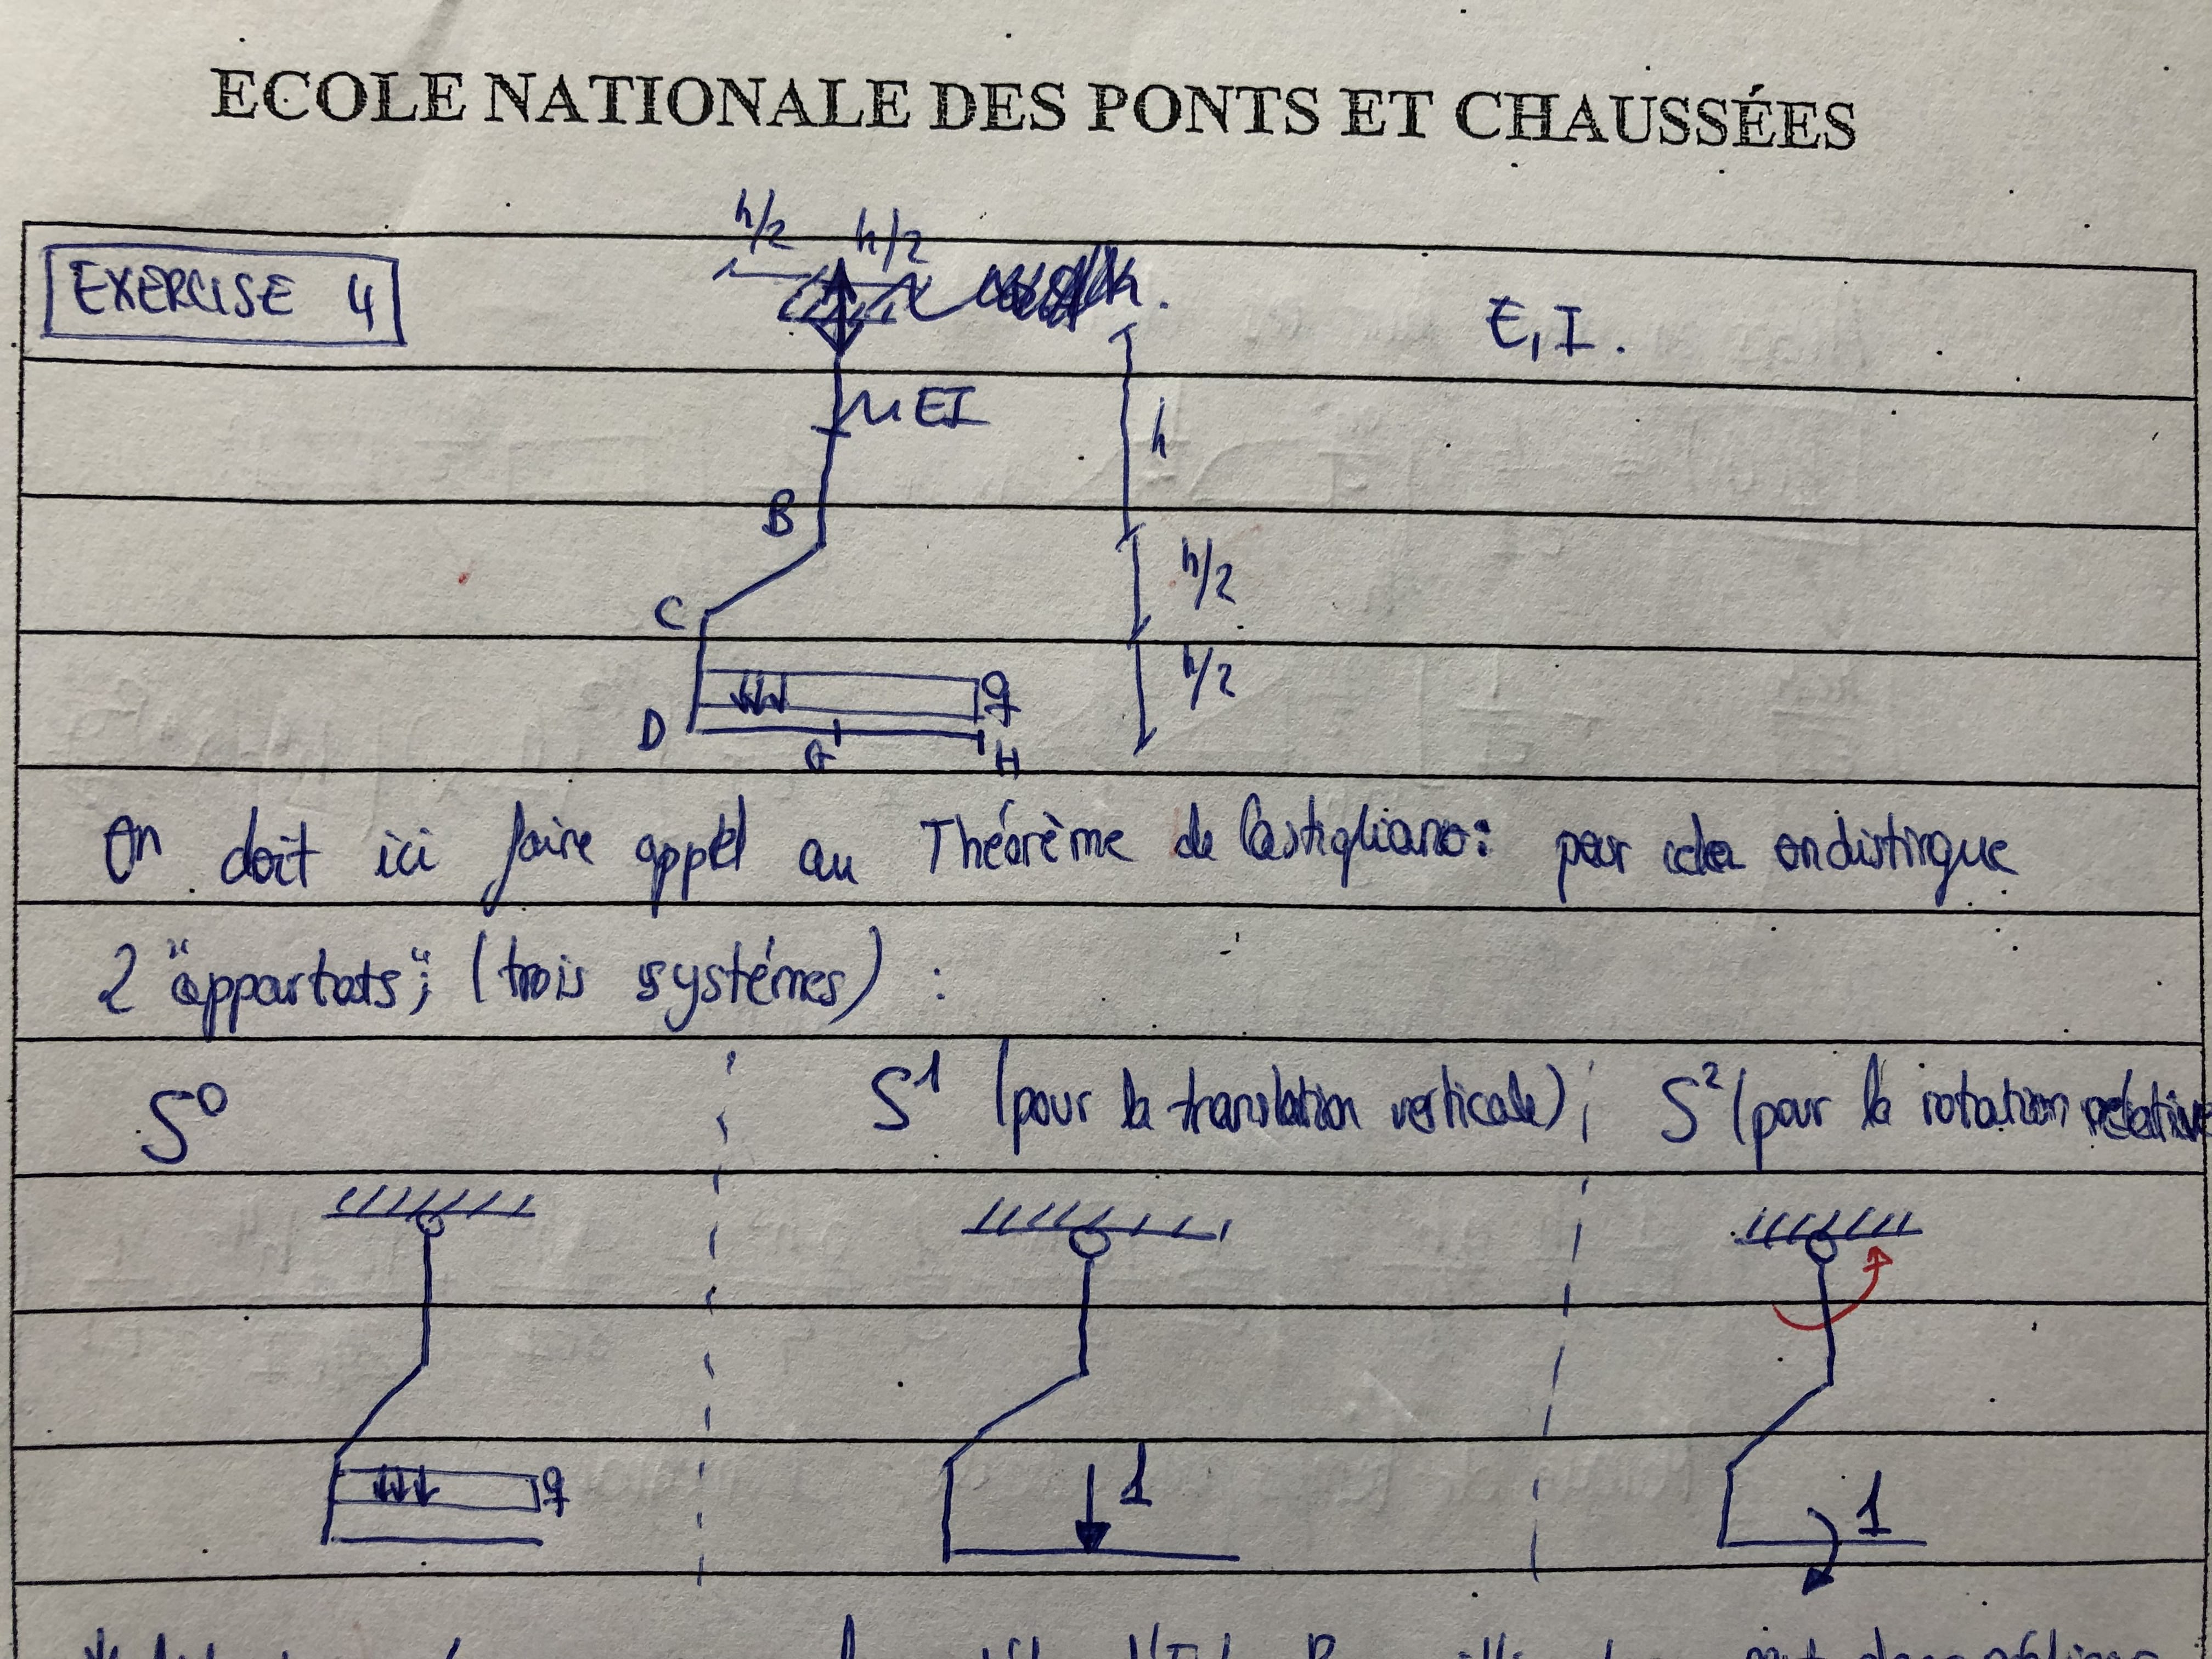 ECOLE NATIONALE DES PONTS ET CHAUSSÉES
h/2 h/2
EXERCISE 4
E, I.
EI
h
B
h/2
C
h/2
q
D
G H
On doit ici faire appel au Théorème de Castigliano: pour cela on distingue
2 "appartats"; (trois systémes) :
S⁰ S¹ (pour la translation verticale) S² (pour la rotation relative
q 1 1